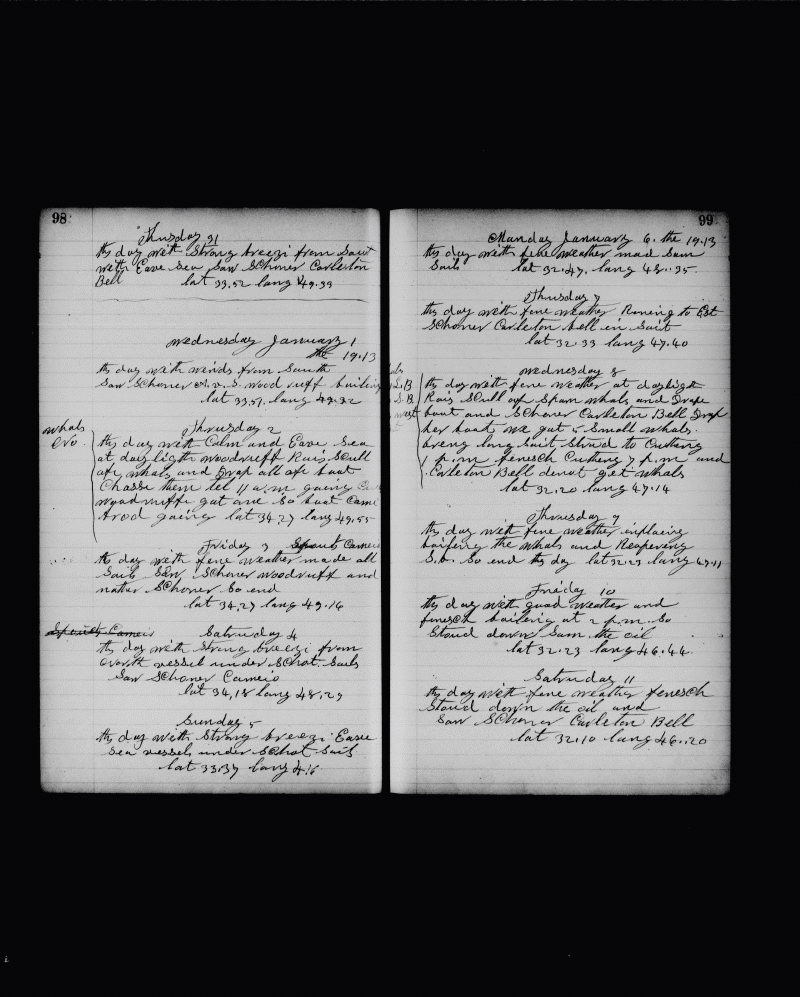 98
Thusday 31
ths day with Strong breezi from Saut
with Eave Sea Saw SChoner Carleton
Bell lat 33,52 lang 49.33
wednesday January 1
the 19.13
ths day with winds from South
Saw SChoner A.V.S. Woodruff boiling
lat 33,57. lang 49.32
whals
No
Thrusday 2
ths day with Calm and Eave Sea
at day ligth woodruff Rais SCull
off whals and Drap all ofe boat
Chasse them tel 11 a.m going
woodruffe gat one So boat Came
Abod gaeing lat 34.27 lang 49.55
Friday 3 Spouts Cameio
ths day with fene weather made all
Sails Saw SChoner woodruff and
nather SChoner So end
lat 34.27 lang 49.16
Spouts Cameio
Saturday 4
ths day with Strong breezi from
North vessel under SChot. Sails
Saw SChoner Cameio
lat 34,18 lang 48.29
Sunday 5
ths day with Strong breezi Eave
Sea vessel under SChot Sails
lat 33.37 lang 4.16
99
Manday January 6. the 19.13
ths day with fene weather mad Sam
Sails lat 32.47. lang 48.35
Thusday 7
ths day with fene weather Runing to Est
SChoner Carleton bell in Sait
lat 32.33 lang 47.40
wednesday 8
ths day with fene weather at dayligth
Rais SCull of Spam whals and Drape
boat and SChoner Carleton Bell Drap
her boats we gat 5 Small whals
breng lang Sait Strud to Cutting
1 p.m fenesch Cutting 7 p.m and
Carleton Bell denot get whals
lat 32.20 lang 47.14
whals
L.B
S.B.
west
Thrusday 9
ths day with fene weather inplaeing
boileing the whals and Reapering
S.b. So end ths day lat 32.23 lang 47.11
Friday 10
ths day with goad weather and
fenesch boileing at 2 p.m. So
Stoud down Sam the oil
lat 32.23 lang 46.44
Saturday 11
ths day with fene weather fenesch
Stoud down the oil and
Saw SChoner Carleton Bell
lat 32.10 lang 46.20